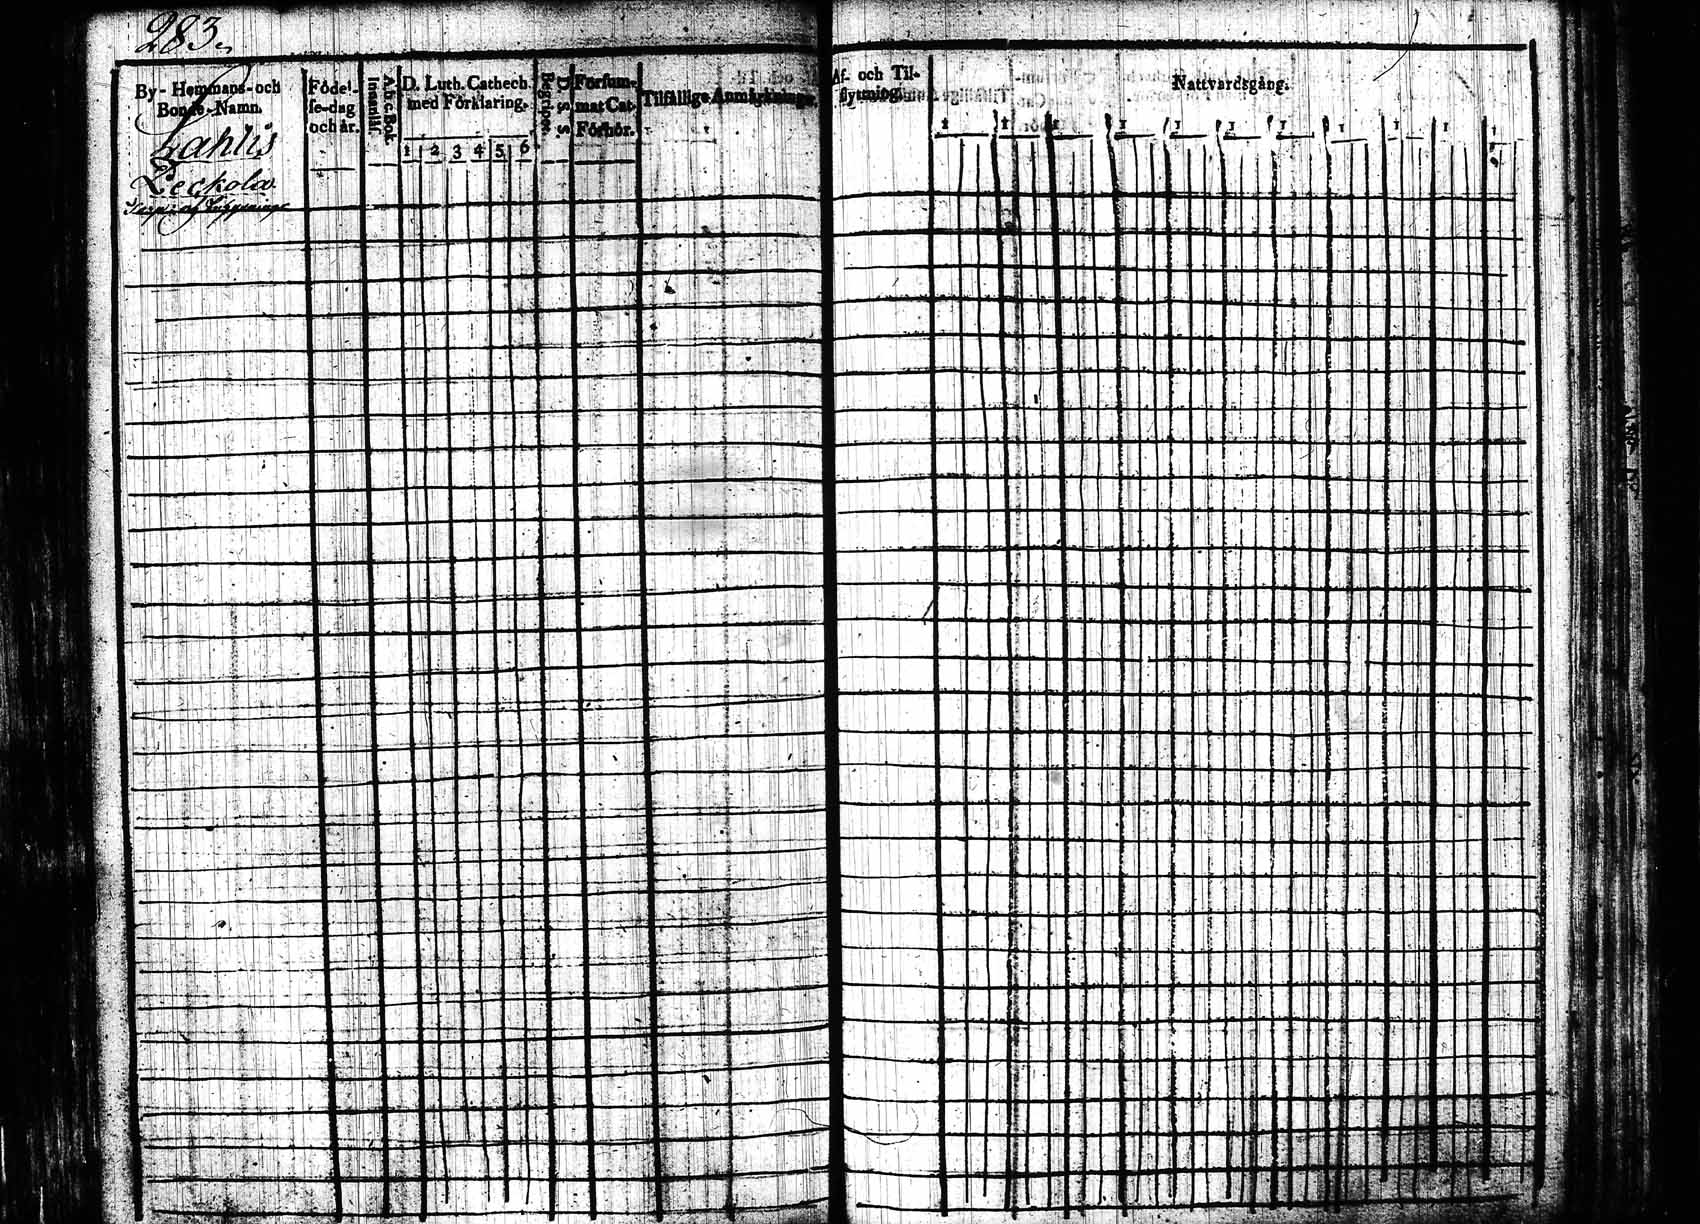 283.
By- Hemmans- och
Bonde-Namn.
Lahtis
Leckola
Födel-
se-dag
och år.
A b c Bok
Innantil.
D. Luth. Cathech.
med Förklaring.
1 2 3 4 5 6
D. S. S.
Begrepe.
Försum-
mat Cat.
Förhör.
Tilfällige Anmärkningar.
Af- och Til-
flyttning.
Nattvardsgång.
1 1 1 1 1 1 1 1 1 1